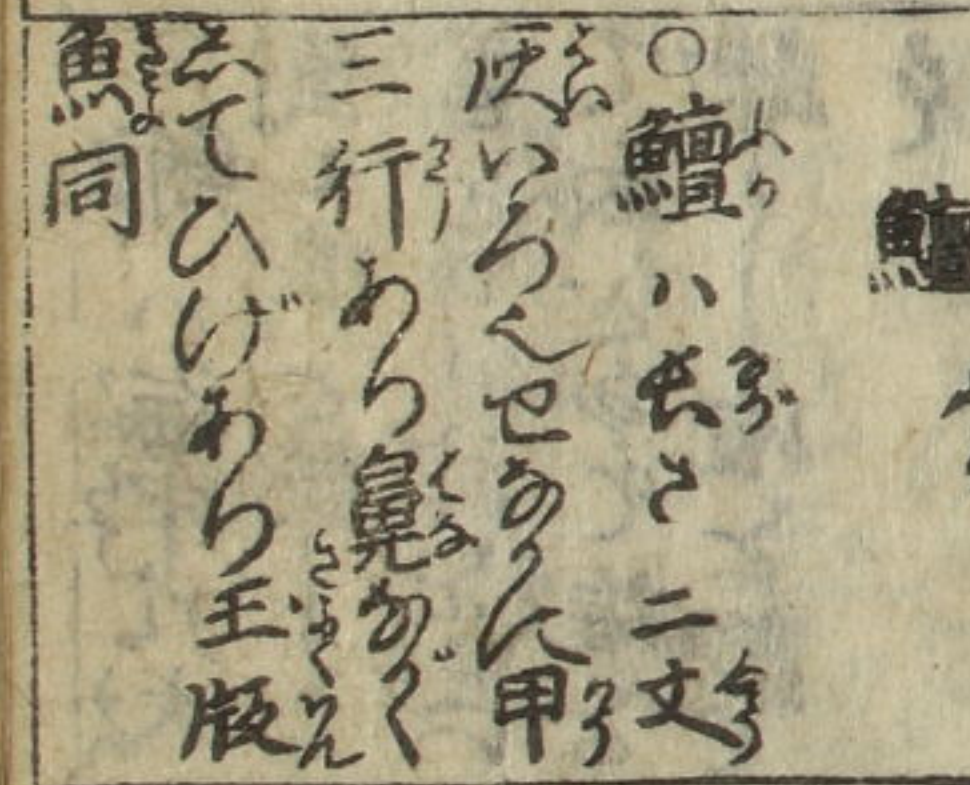 鱣
○鱣ハ長さ二丈
灰いろ也せなかに甲
三行あり鼻ながく
してひげあり玉版
魚同